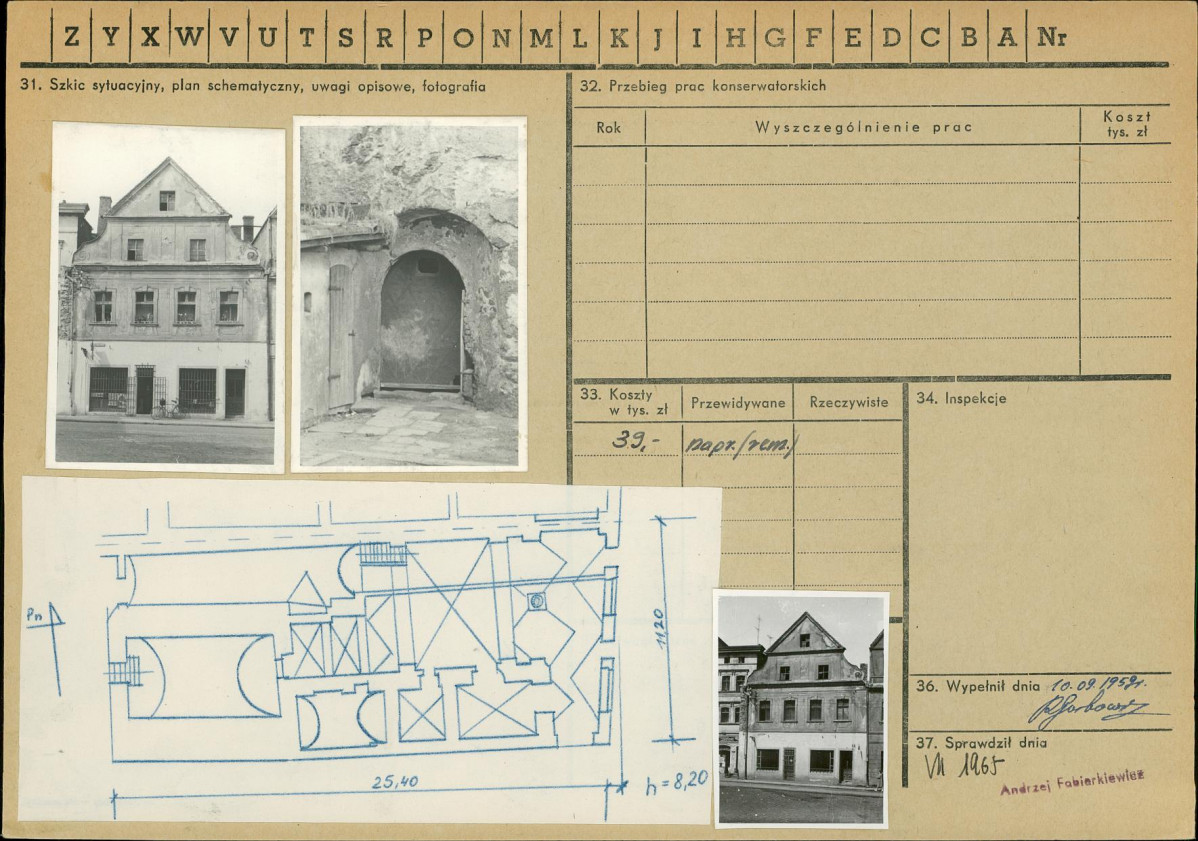 Z Y X W V U T S R P O N M L K J I H G F E D C B A Nr
31. Szkic sytuacyjny, plan schematyczny, uwagi opisowe, fotografia
32. Przebieg prac konserwatorskich
Rok
Wyszczególnienie prac
Koszt
tys. zł
33. Koszty
w tys. zł
Przewidywane
Rzeczywiste
39,-
napr. (rem.)
34. Inspekcje
Pn
11,20
25,40
h = 8,20
36. Wypełnił dnia 10.09.1959r.
37. Sprawdził dnia
VII 1965
Andrzej Fabierkiewicz